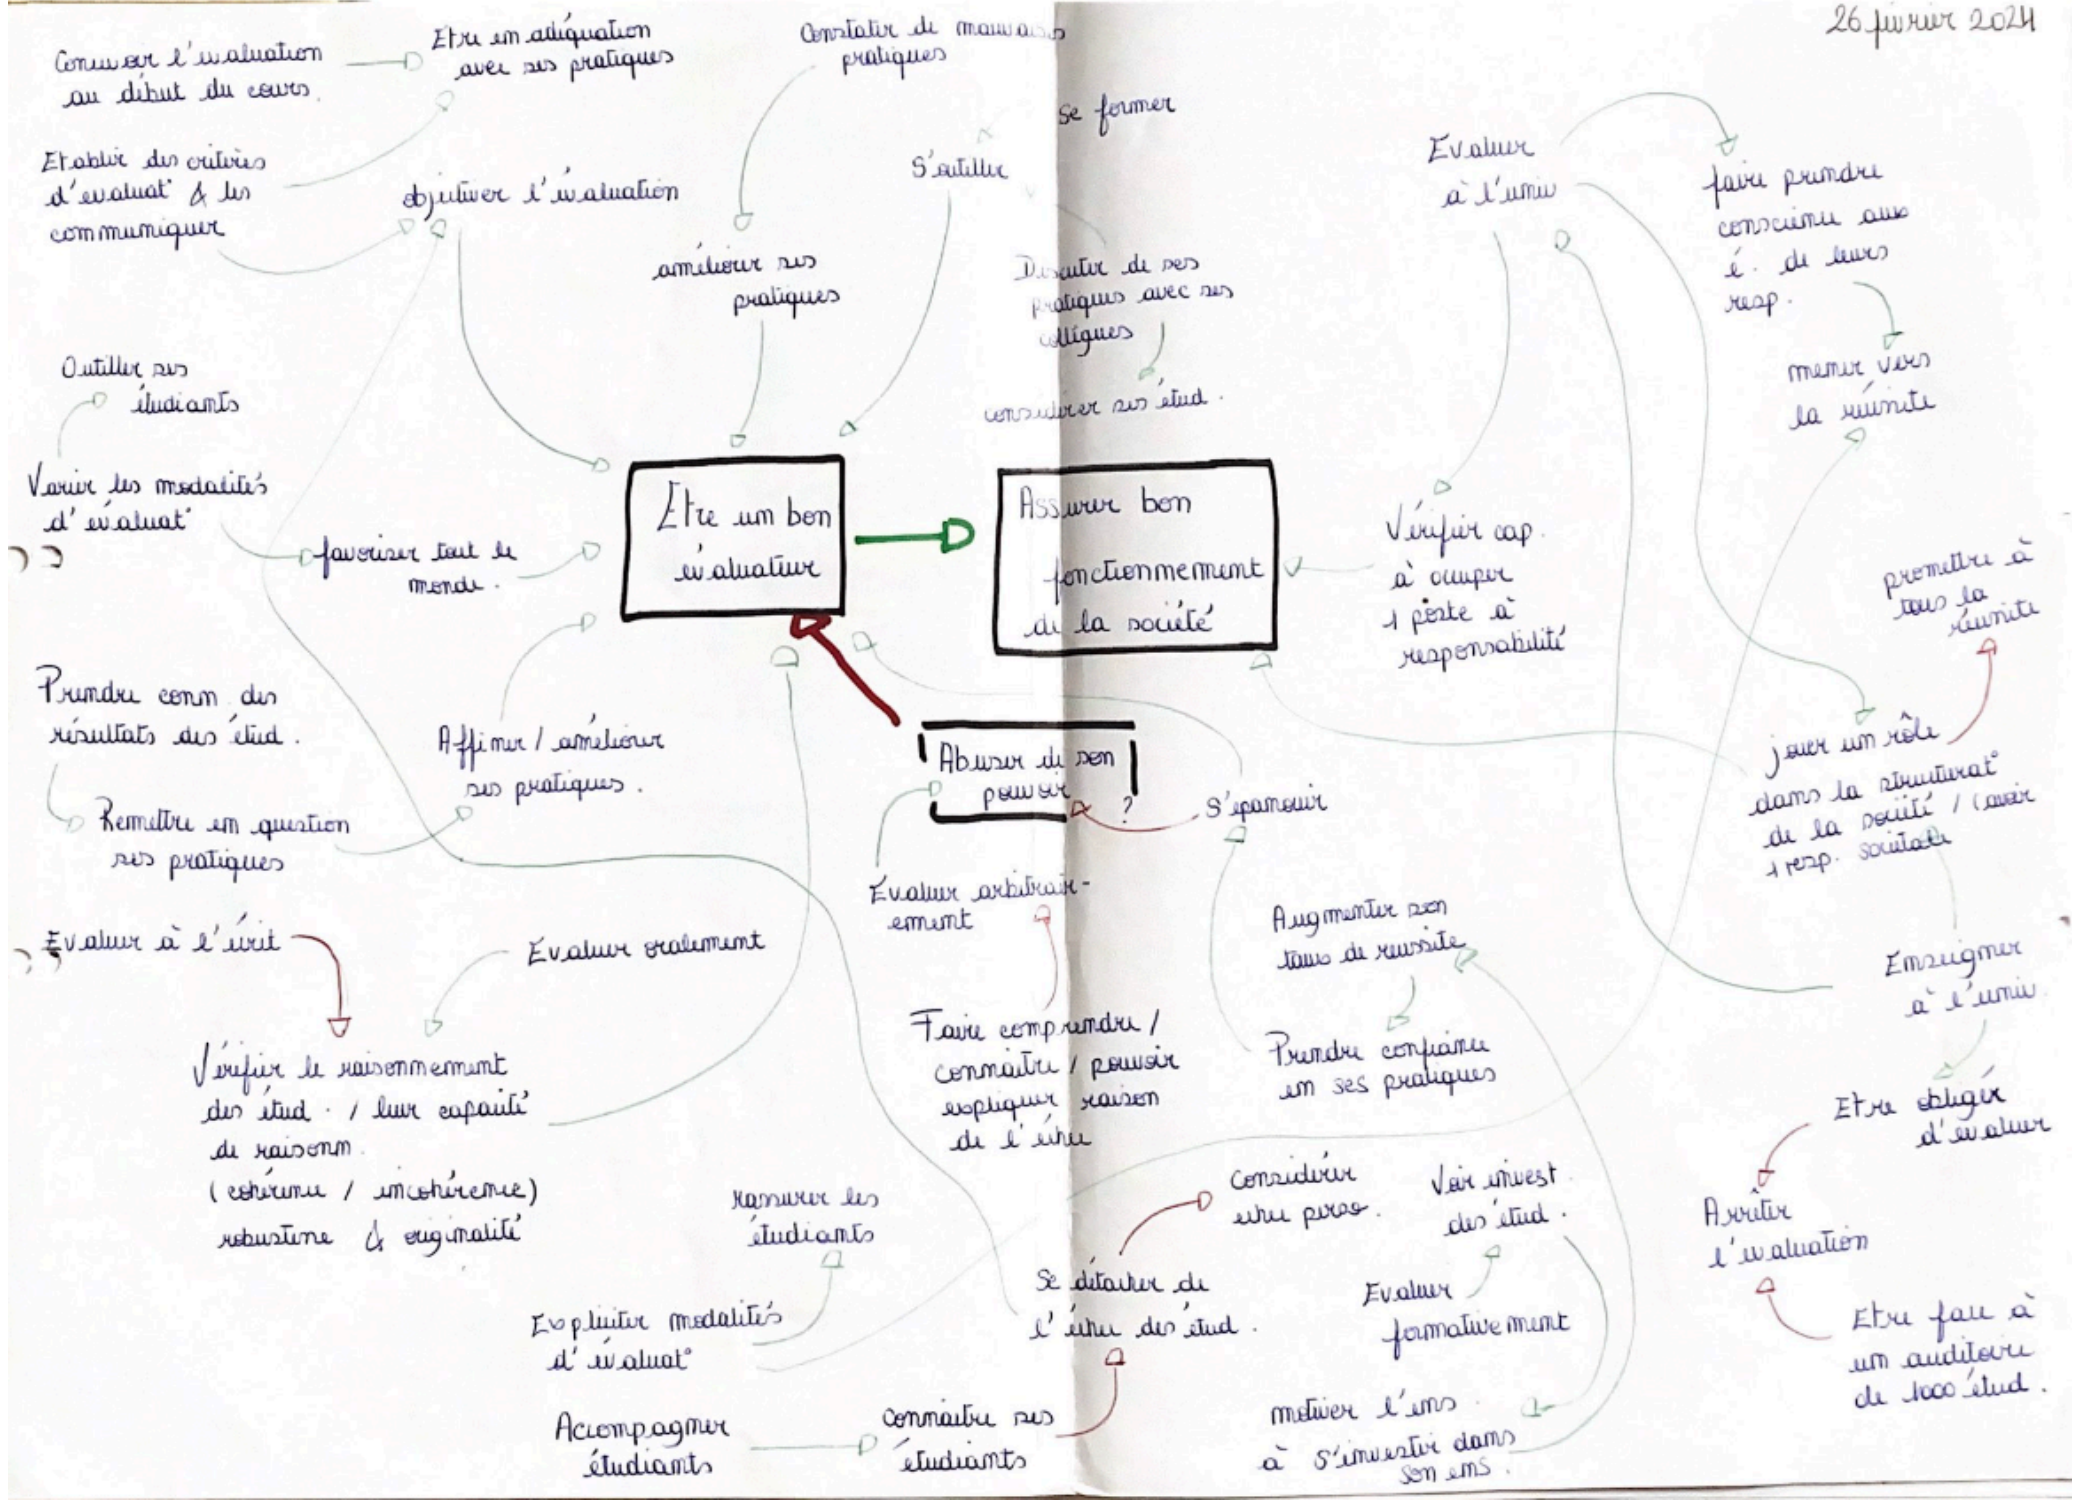 26 février 2024
Concevoir l'évaluation
au début du cours.
Etre en adéquation
avec ses pratiques
Constater de mauvaises
pratiques
Se former
S'outiller
Etablir des critères
d'évaluat° & les
communiquer
objectiver l'évaluation
améliorer ses
pratiques
Discuter de ses
pratiques avec ses
collègues
considérer ses étud.
Evaluer
à l'univ
faire prendre
conscience aux
é. de leurs
resp.
mener vers
la réussite
Outiller ses
étudiants
Varier les modalités
d'évaluat°
favoriser tout le
monde.
Etre un bon
évaluateur
Assurer bon
fonctionnement
de la société
Vérifier cap.
à occuper
1 poste à
responsabilité
promettre à
tous la
réussite
Prendre conn. des
résultats des étud.
Remettre en question
ses pratiques
Affiner / améliorer
ses pratiques.
Abuser de son
pouvoir
?
S'épanouir
jouer un rôle
dans la structurat°
de la société / (avoir
1 resp. sociétale
Evaluer à l'écrit
Evaluer oralement
Evaluer arbitrair-
ement
Augmenter son
taux de réussite
Enseigner
à l'univ.
Vérifier le raisonnement
des étud. / leur capacité
de raisonn.
(cohérence / incohérence)
robustesse & originalité
Faire comprendre /
connaître / pouvoir
expliquer raison
de l'échec
Prendre confiance
en ses pratiques
Etre obligér
d'évaluer
rassurer les
étudiants
Considérer
échec perso.
Voir invest.
des étud.
Arrêter
l'évaluation
Expliciter modalités
d'évaluat°
Se détacher de
l'échec des étud.
Evaluer
formativement
Etre face à
un auditoire
de 1000 étud.
Accompagner
étudiants
connaître ses
étudiants
motiver l'ens.
à s'investir dans
son ens.